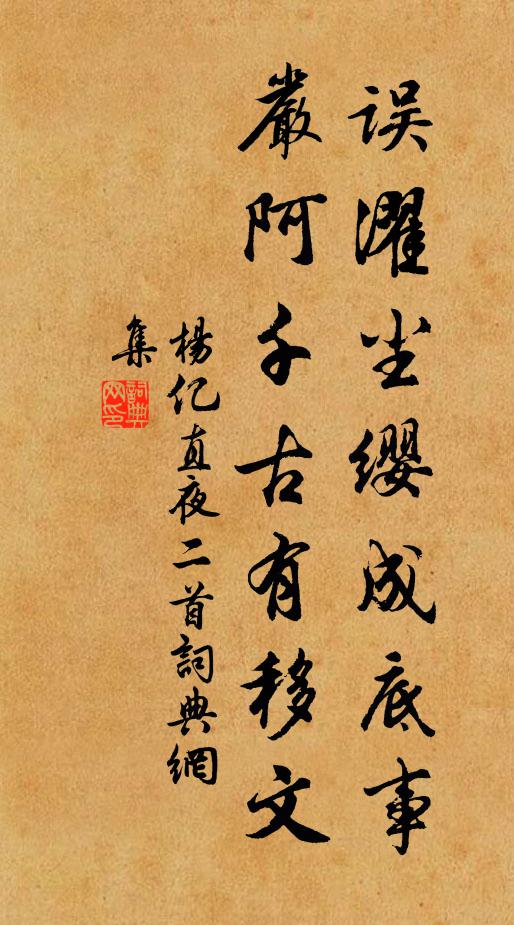 误濯尘缨成底事
嚴阿千古有移文
楊亿直夜二首詞典網
集
詞典
网印